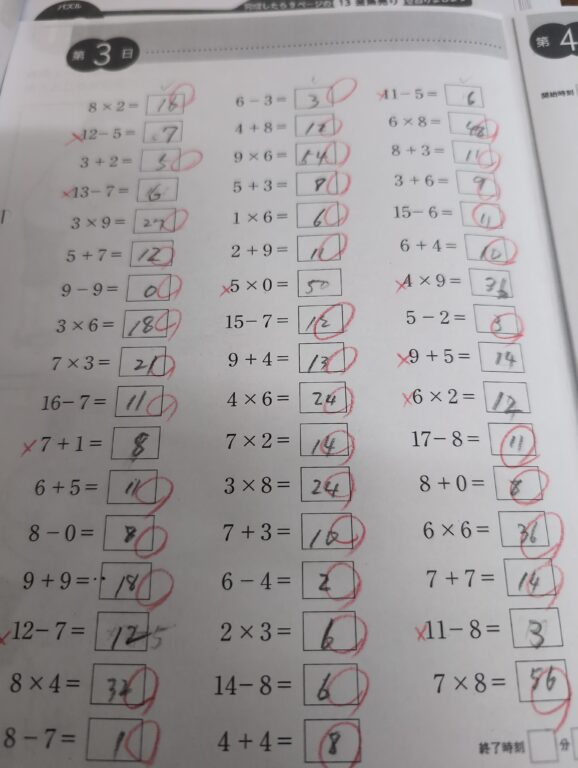 パズル
第3日
第4
開始時刻
8×2= 16
6−3= 3
11−5= 6
12−5= 7
4+8= 12
6×8= 48
3+2= 5
9×6= 54
8+3= 11
13−7= 6
5+3= 8
3+6= 9
3×9= 27
1×6= 6
15−6= 11
5+7= 12
2+9= 11
6+4= 10
9−9= 0
5×0= 50
4×9= 36
3×6= 18
15−7= 12
5−2= 3
7×3= 21
9+4= 13
9+5= 14
16−7= 11
4×6= 24
6×2= 12
7+1= 8
7×2= 14
17−8= 11
6+5= 11
3×8= 24
8+0= 8
8−0= 8
7+3= 10
6×6= 36
9+9= 18
6−4= 2
7+7= 14
12−7= 12 5
2×3= 6
11−8= 3
8×4= 32
14−8= 6
7×8= 56
8−7= 1
4+4= 8
終了時刻 分